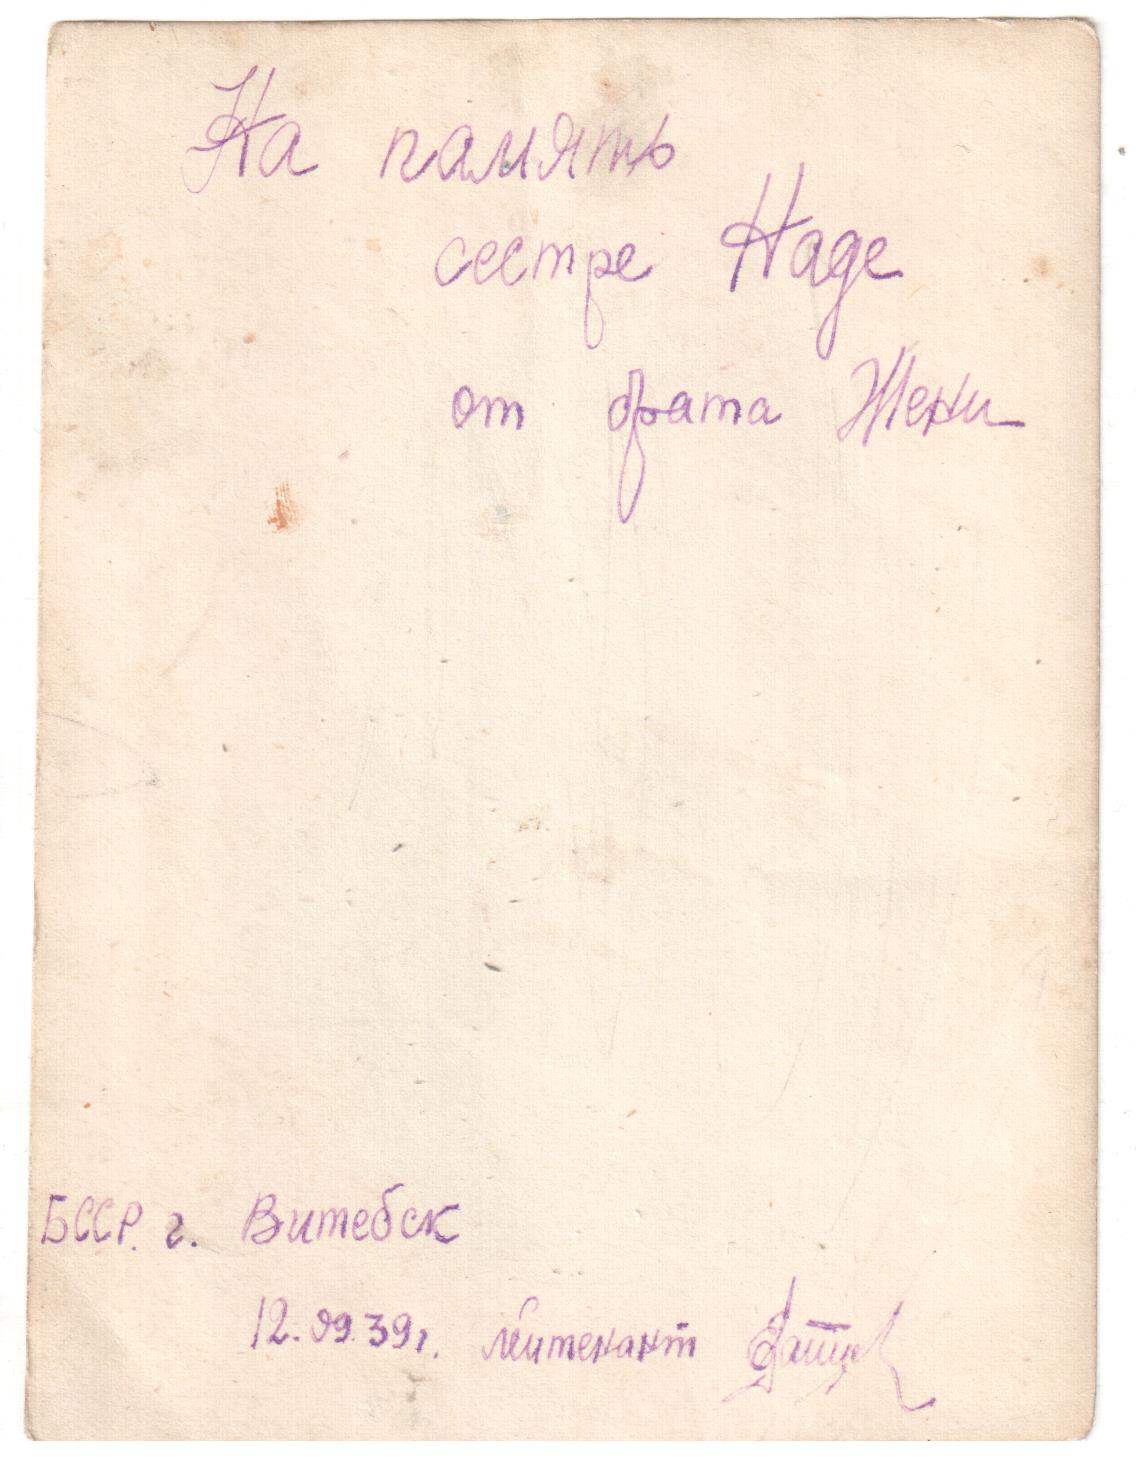 На память
сестре Наде
от брата Жени
БССР. г. Витебск
12.09.39г. лейтенант